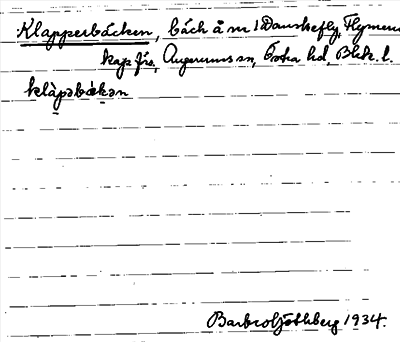 Klapperbäcken, bäck å nr 1 Danskefly, Flymens
kap. frs., Augerums sn, Östra hd, Blek. l.
klàpəbækən
Barbro Göthberg 1934.